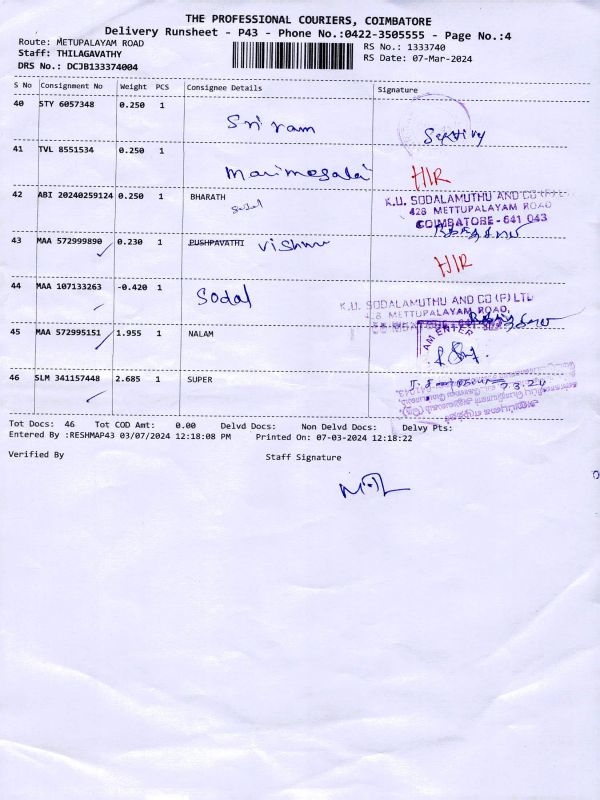 THE PROFESSIONAL COURIERS, COIMBATORE
Delivery Runsheet - P43 - Phone No.:0422-3505555 - Page No.:4
Route: METUPALAYAM ROAD
RS No.: 1333740
Staff: THILAGAVATHY
RS Date: 07-Mar-2024
DRS No.: DCJB133374004
S No Consignment No Weight PCS Consignee Details Signature
40 STY 6057348 0.250 1 Sri ram
41 TVL 8551534 0.250 1 HIR
42 ABI 20240259124 0.250 1 BHARATH
Sodal
K.U. SODALAMUTHU AND CO (P) LTD
428 METTUPALAYAM ROAD
COIMBATORE - 641 043
43 MAA 572999890 0.230 1 PUSHPAVATHI Vishnu HIR
44 MAA 107133263 -0.420 1 Sodal
K.U. SODALAMUTHU AND CO (P) LTD
428 METTUPALAYAM ROAD,
45 MAA 572995151 1.955 1 NALAM
46 SLM 341157448 2.685 1 SUPER 7.3.24
Tot Docs: 46 Tot COD Amt: 0.00 Delvd Docs: Non Delvd Docs: Delvy Pts:
Entered By :RESHMAP43 03/07/2024 12:18:08 PM Printed On: 07-03-2024 12:18:22
Verified By Staff Signature